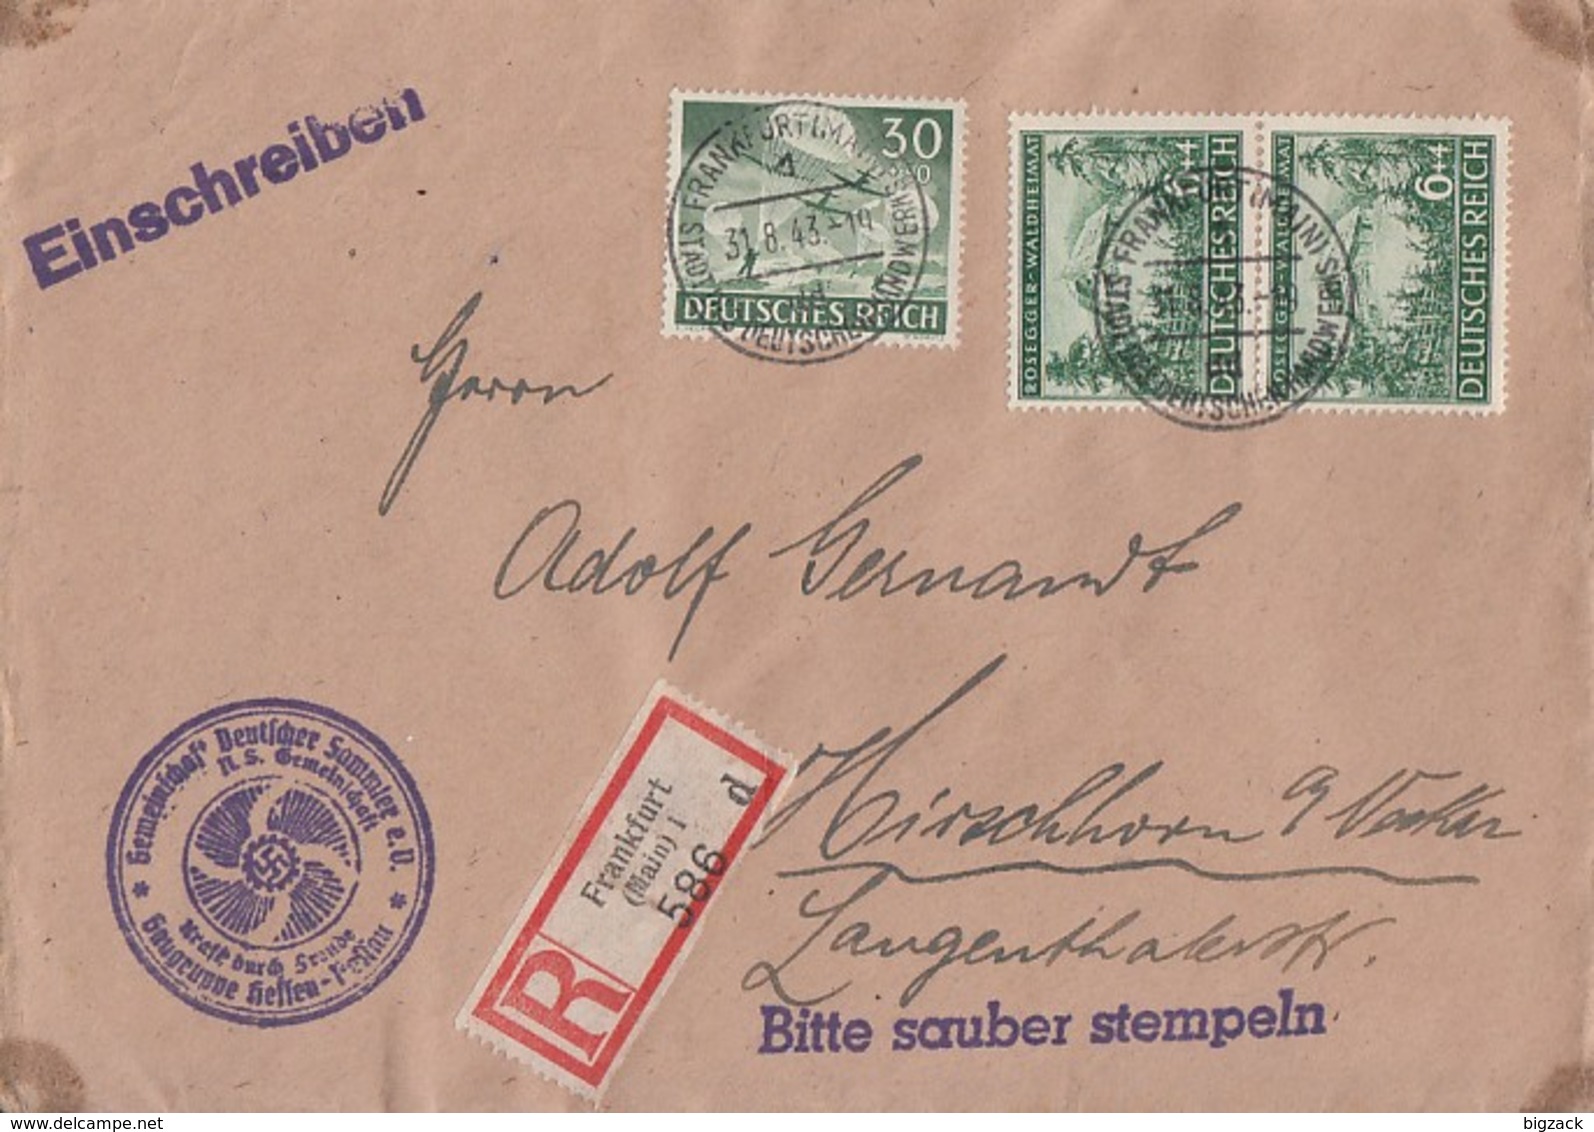 Einschreiben
30
DEUTSCHES REICH
STADT DES DEUTSCHEN HANDWERKS FRANKFURT (MAIN)
31.8.43.-19
ROSEGGER-WALDHEIMAT
6+4
DEUTSCHES REICH
ROSEGGER-WALDHEIMAT
6+4
DEUTSCHES REICH
STADT DES DEUTSCHEN HANDWERKS FRANKFURT (MAIN)
Herrn
Adolf Gernandt
Hirschhorn a/Neckar
Langenthalerstr.
Frankfurt
(Main) 1
586 d
R
Gemeinschaft Deutscher Sammler e.V.
N.S. Gemeinschaft
Kraft durch Freude
Gaugruppe Hessen-Nassau
Bitte sauber stempeln
delcampe.net
bigzack